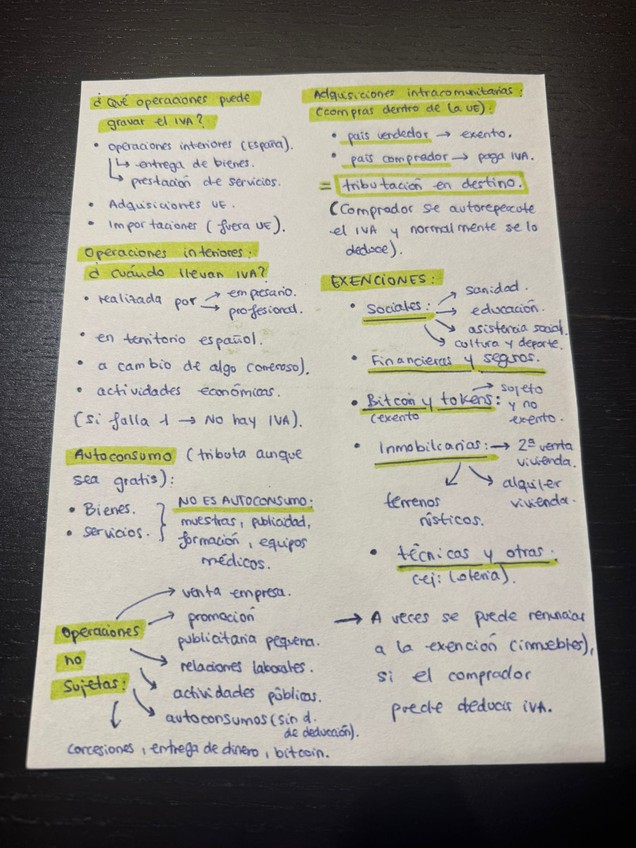 ¿Qué operaciones puede
gravar el IVA?
• Operaciones interiores (España).
↳ entrega de bienes.
↳ prestación de servicios.
• Adquisiciones UE.
• Importaciones (fuera UE).
Operaciones interiores:
¿cuándo llevan IVA?
• realizada por → empresario.
→ profesional.
• en territorio español.
• a cambio de algo (oneroso).
• actividades económicas.
(si falla 1 → No hay IVA).
Autoconsumo (tributa aunque
sea gratis):
• Bienes.
• servicios.
NO ES AUTOCONSUMO:
muestras, publicidad,
formación, equipos
médicos.
Operaciones
no
sujetas:
→ venta empresa.
→ promoción
publicitaria pequeña.
→ relaciones laborales.
→ actividades públicas.
→ autoconsumos (sin d.
de deducción).
concesiones, entrega de dinero, bitcoin.
Adquisiciones intracomunitarias:
(compras dentro de la UE):
• país vendedor → exento.
• país comprador → paga IVA.
= tributación en destino.
(Comprador se autorepercute
el IVA y normalmente se lo
deduce).
EXENCIONES:
• Sociales: → sanidad.
→ educación.
→ asistencia social.
→ cultura y deporte.
• Financieras y seguros.
• Bitcoin y tokens: → sujeto
(exento y no
exento.
• Inmobilcarias: → 2ª venta
vivienda.
alquiler
vivienda.
terrenos
rústicos.
• técnicas y otras.
(ej: lotería).
→ A veces se puede renunciar
a la exención (inmuebles),
si el comprador
puede deducir IVA.